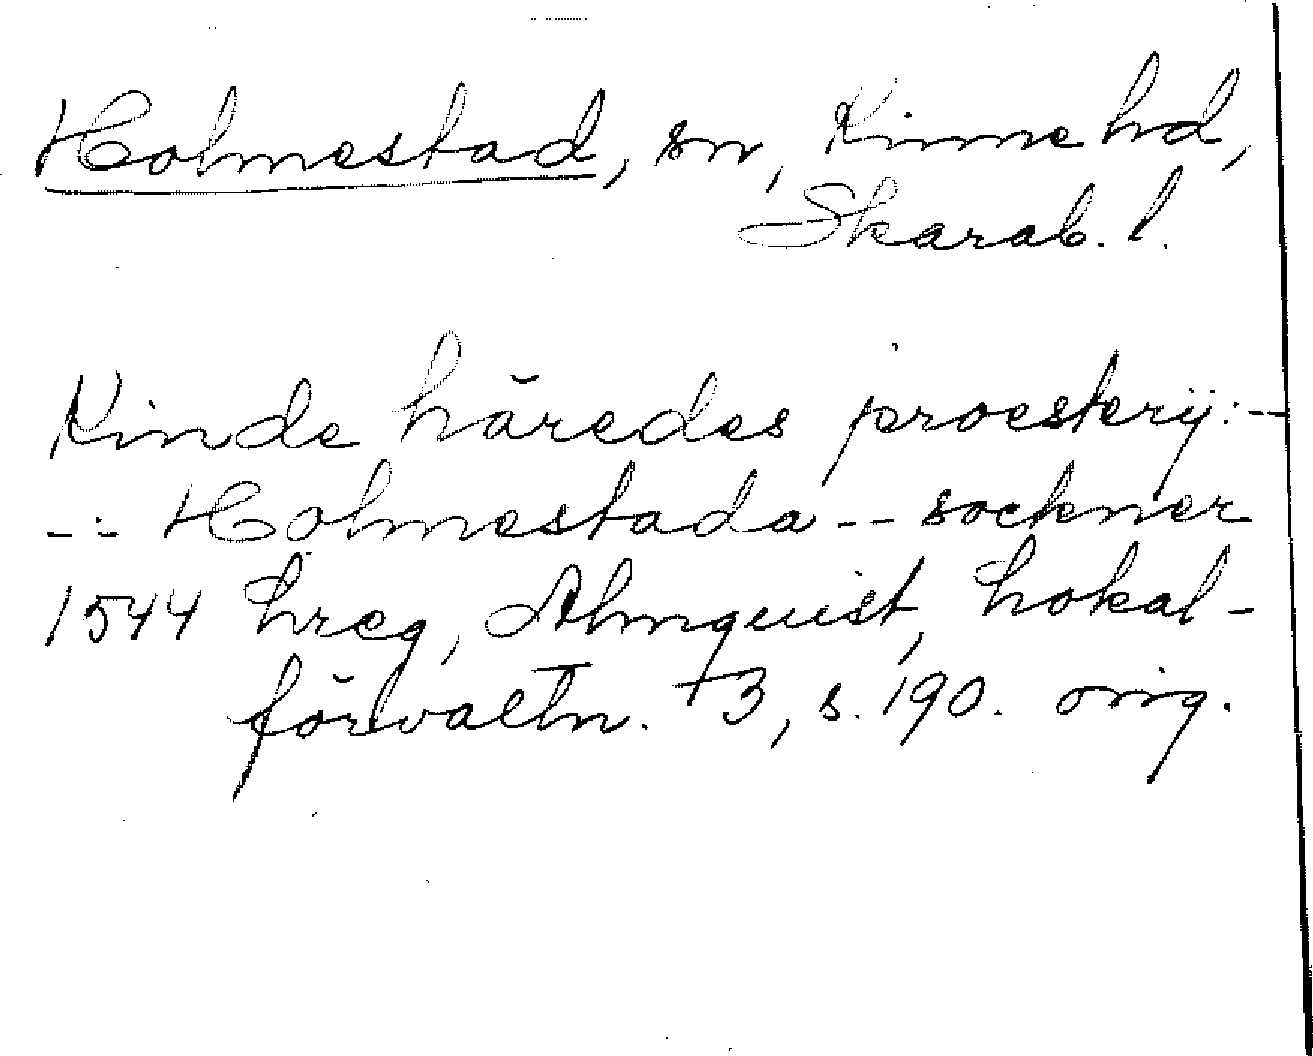 Holmestad, sn, Kinne hd,
Skarab. l.
Kinde häredes proesterij: -
-:- Holmestada -- sockner
1544 hreg, Almquist, Lokal-
förvaltn. +3, s. 190. orig.